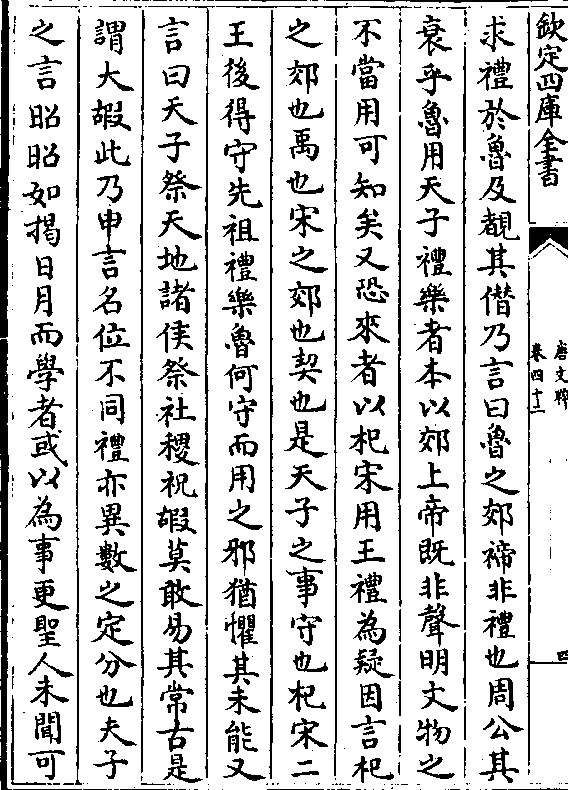 欽定四庫全書
唐文粹
卷四十二
四
求禮於魯及覩其僭乃言曰魯之郊禘非禮也周公其
衰乎魯用天子禮樂者本以郊上帝既非聲明文物之
不當用可知矣又恐來者以杞宋用王禮為疑因言杞
之郊也禹也宋之郊也契也是天子之事守也杞宋二
王後得守先祖禮樂魯何守而用之邪猶懼其未能又
言曰天子祭天地諸侯祭社稷祝嘏莫敢易其常古是
謂大嘏此乃申言名位不同禮亦異數之定分也夫子
之言昭昭如揭日月而學者或以為事更聖人未聞可